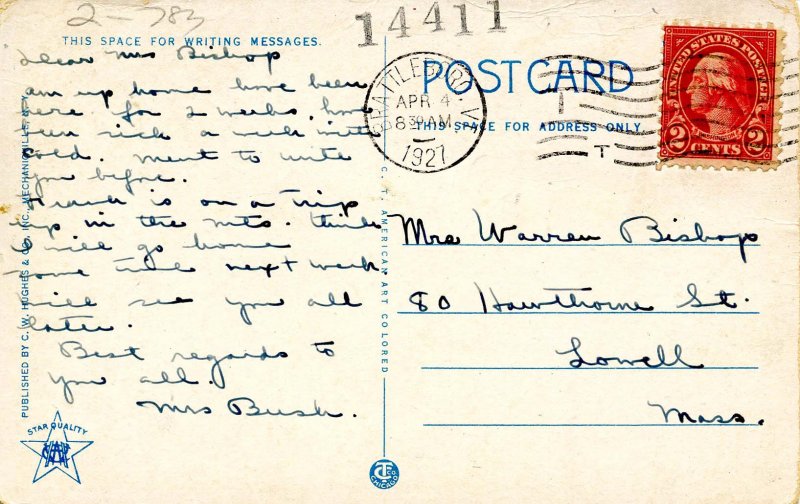 2-783
14411
THIS SPACE FOR WRITING MESSAGES.
Dear Mrs Bishop
am up home have been
here for 2 weeks, have
been sick a week with
cold. Meant to write
you before.
Frank is on a trip
up in the mts. think
I will go home
some time next week.
will see you all
later.
Best regards to
you all.
Mrs Bush.
PUBLISHED BY C. W. HUGHES & CO. INC., MECHANICVILLE, N. Y.
STAR QUALITY
C. T. AMERICAN ART COLORED
CHICAGO
POST CARD
THIS SPACE FOR ADDRESS ONLY.
BRATTLEBORO, V
APR 4
8 30 AM
1927
UNITED STATES POSTAGE
2 CENTS 2
Mrs Warren Bishop
80 Hawthorne St.
Lowell
Mass.